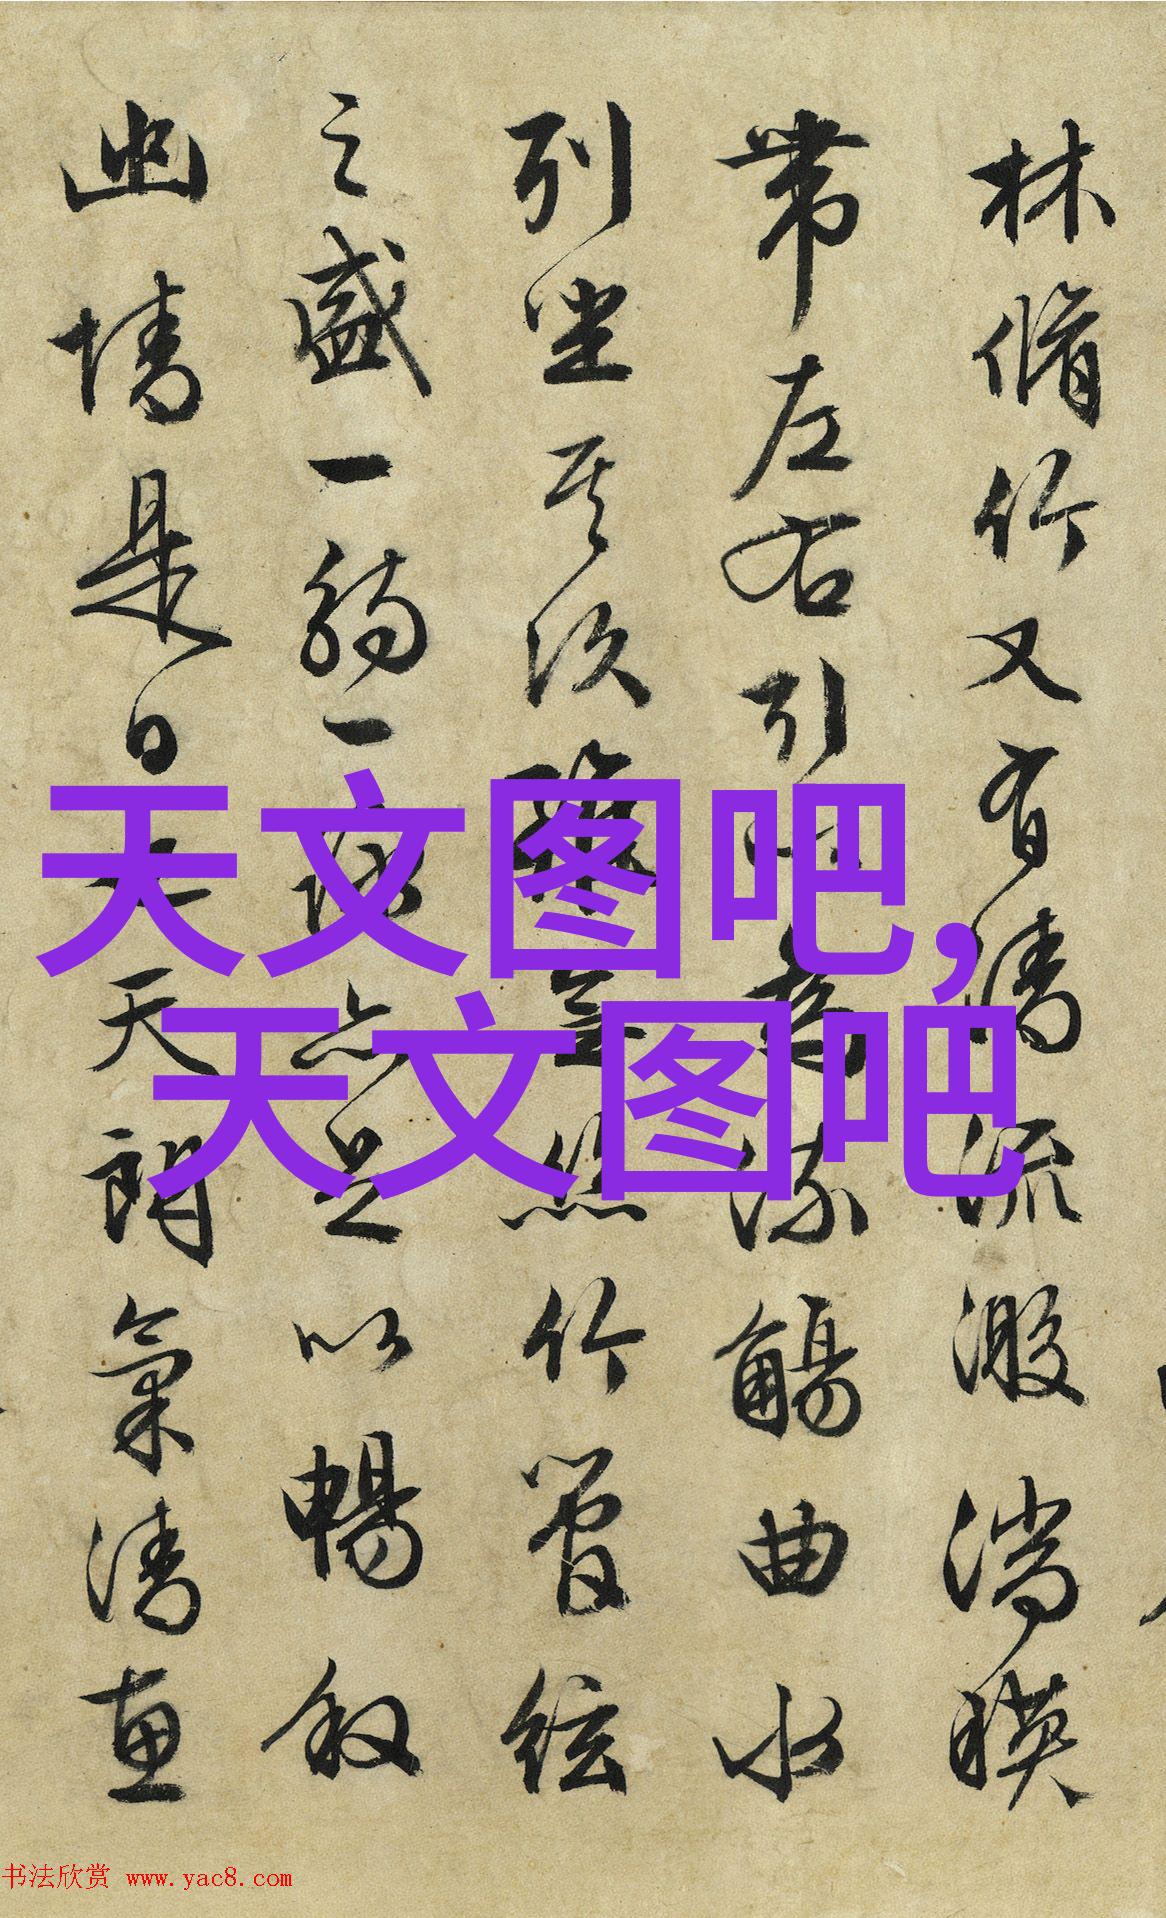 林脩竹又有清流激湍暎
帶左右引以為流觴曲水
列坐其次雖無絲竹管絃
之盛一觴一詠亦足以暢敘
幽情是日也天朗氣清惠
天文图吧,
天文图吧
书法欣赏 www.yac8.com